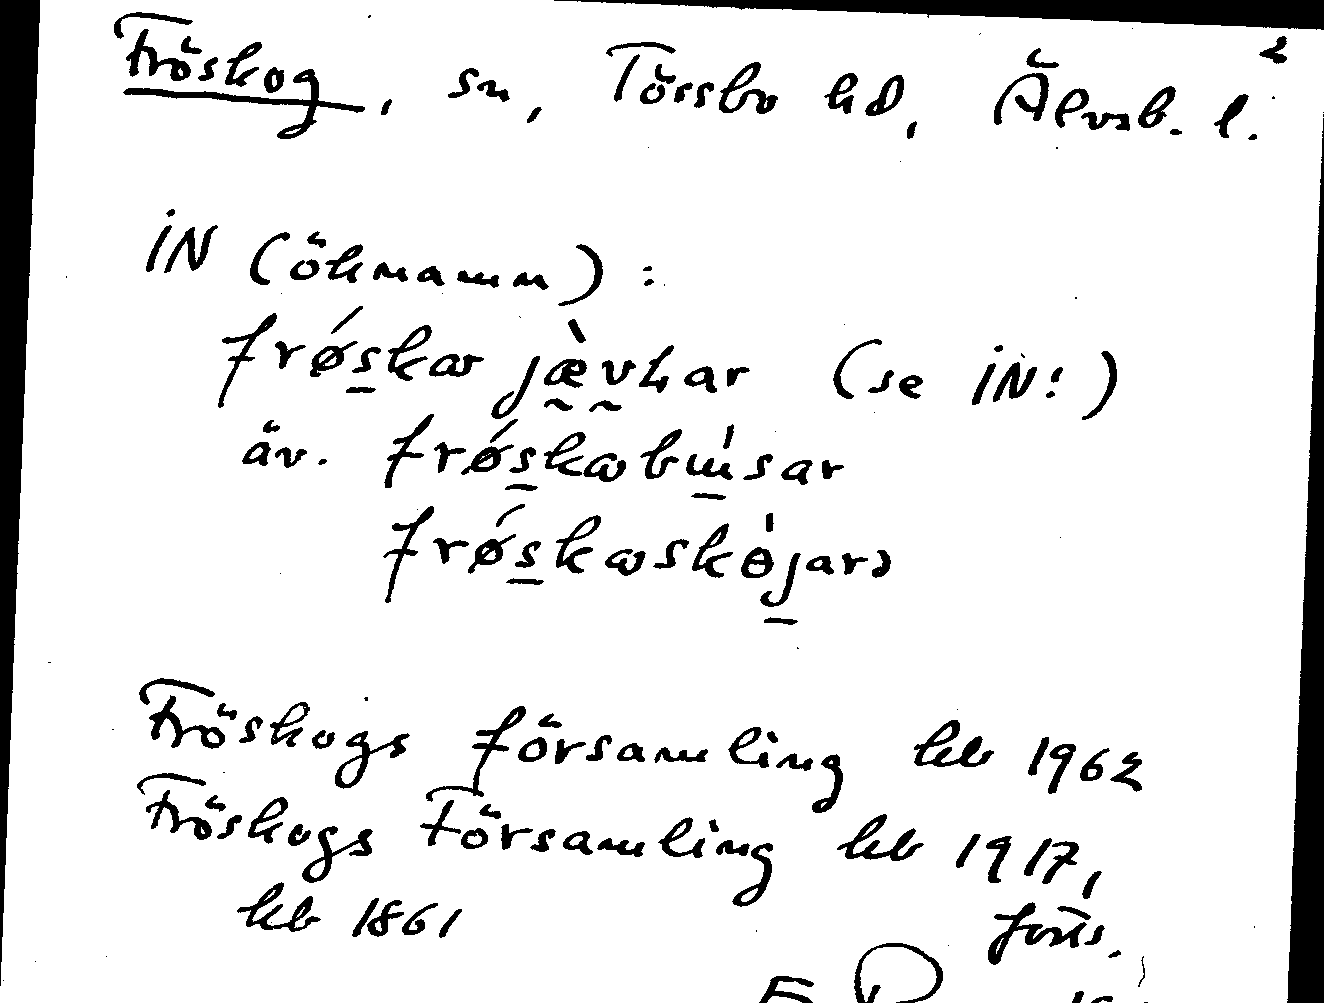 2
Fröskog, sn, Tössbo hd, Älvsb. l.
IN (öknamn):
frǿskɷ jæ̀vɥar (se IN!)
äv. frǿskɷbɯ́sar
frǿskɷskɵ́jarɔ
Fröskogs församling kb 1962
Fröskogs Församling kb 1917,
kb 1861 forts.